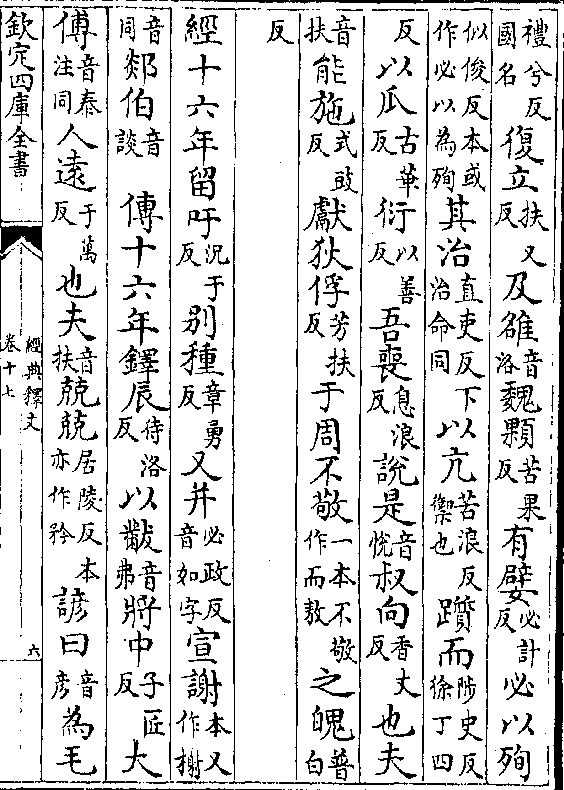 禮兮反國名復立扶又反及雒音洛魏顆苦果反有嬖必計反必以殉
似俊反本或作必以為殉其治直吏反下治命同以亢苦浪反禦也躓而陟吏反徐丁四
反以瓜古華反衍以善反吾喪息浪反說是音悅叔向香丈反也夫
音扶能施式豉反獻狄俘芳扶反于周不敬一本不敬作而敖之魄普白
反
經十六年留吁況于反別種章勇反又并必政反音如字宣謝本又作榭
音同郯伯音談傳十六年鐸辰待洛反以黻音弗將中子匠反大
傅音泰注同人遠于萬反也夫音扶兢兢居陵反本亦作矜諺曰音彥為毛
欽定四庫全書
經典釋文
卷十七
六